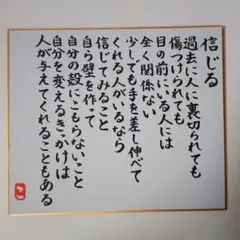 信じる
過去に人に裏切られても
傷つけられても
目の前にいる人には
全く関係ない
少しでも手を差し伸べて
くれる人がいるなら
信じてみること
自ら壁を作って
自分の殻にこもらないこと
自分を変えるきっかけは
人が与えてくれることもある